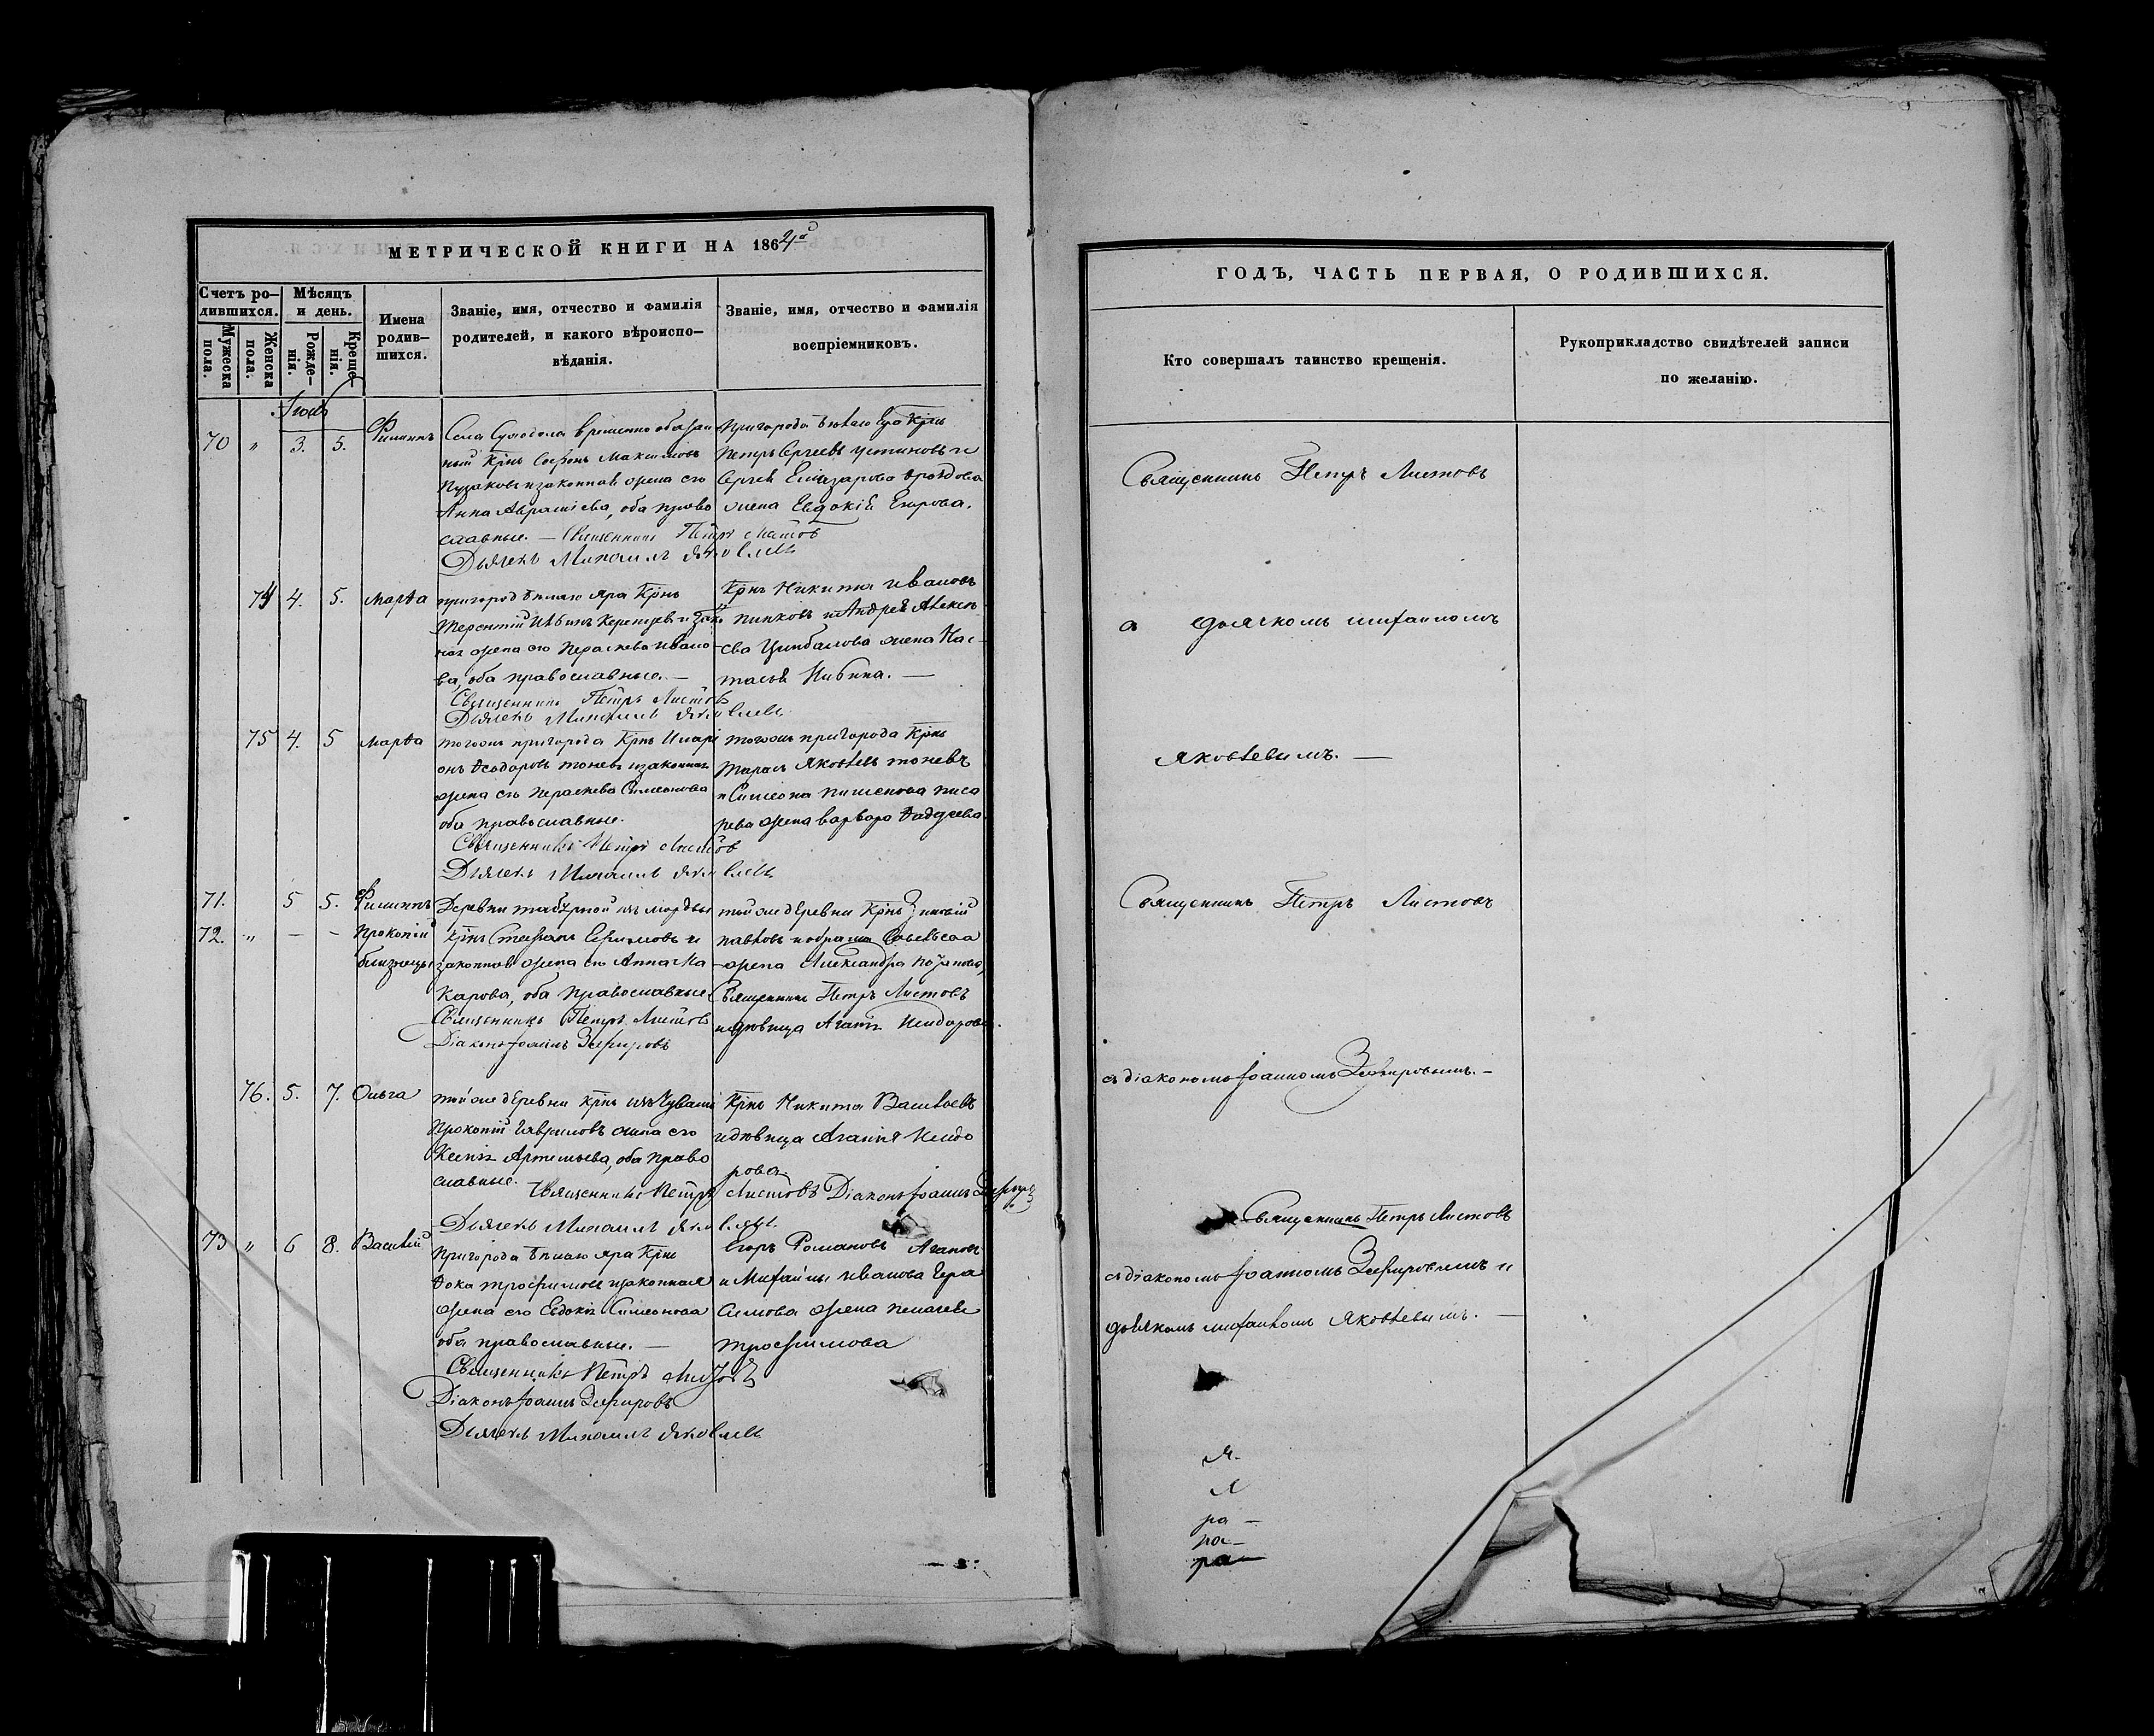 МЕТРИЧЕСКОЙ КНИГИ НА 1864й
Счетъ ро-
дившихся.
Мѣсяцъ
и день.
Мужеска
пола.
Женска
пола.
Рожде-
нія.
Креще-
нія.
Имена
родив-
шихся.
Званіе, имя, отчество и фамилія
родителей, и какого вѣроиспо-
вѣданія.
Званіе, имя, отчество и фамилія
воспріемниковъ.
70 „ 3. 5. Филиппъ
Села Суходола временно обязан
ный Крнъ Софонъ Максимовъ
Пузаковъ и законная жена его
Анна Авраміева, оба право
славные. — Священникъ Петръ Листовъ
Дьячекъ Михаилъ Яковлевъ
Пригорода Бѣлаго Яра Крнъ
Петръ Сергеевъ Устиновъ и
Сергея Елиазарова Дроздова
жена Евдокія Егорова.
74 4. 5. Марѳа
пригорода Бѣлаго Яра Крнъ
Терентій
ная жена его Параскева Ивано
ва, оба православные. —
Священникъ Петръ Листовъ
Дьячекъ Михаилъ Яковлевъ
Крнъ Никита Ивановъ
Пипковъ и Андрея Алексѣ
ева Цимбалова жена Нас-
тасья
75 4. 5 Марѳа
тогожъ пригорода Крнъ Илари
онъ Ѳеодоровъ Тоневъ и законная
жена его Параскева Симеонова
оба православные.
Священникъ Петръ Листовъ
Дьячекъ Михаилъ Яковлевъ
тогожъ пригорода Крнъ
Тарасъ Яковлевъ Тоневъ
и Симеона Пименова Писа
рева жена Варвара Ѳаддеева.
71. 5 5. Филиппъ
72. „ — — Прокопій
близнецы
Деревни изъ мордвы
крнъ Стефанъ Ефимовъ и
законная жена его Анна Ма
карова, оба православные
Священникъ Петръ Листовъ
Діаконъ Іоаннъ Зефировъ
той же деревни Крнъ Зиновій
Павловъ
жена Александра
Священникъ Петръ Листовъ
и дѣвица Агапія Исидорова.
76. 5. 7. Ольга
той же деревни Крнъ изъ Чувашъ
Прокопій Гавриловъ жена его
Ксенія Артемьева, оба право
славные. Священникъ Петръ Листовъ Діаконъ Іоаннъ Зефировъ
Дьячекъ Михаилъ Яковлевъ.
Крнъ Никита Васильевъ
и дѣвица Агапія Исидо
рова.
73 „ 6 8. Василій
Пригорода Бѣлаго Яра Крнъ
Ѳока Трофимовъ и законная
жена его Евдокія Симеонова
оба православные. —
Священникъ Петръ Листовъ
Діаконъ Іоаннъ Зефировъ
Дьячекъ Михаилъ Яковлевъ
Егоръ Романовъ Агаповъ
и Михайлы Иванова Гера
симова жена Пелагея
Трофимова
ГОДЪ, ЧАСТЬ ПЕРВАЯ, О РОДИВШИХСЯ.
Кто совершалъ таинство крещенія.
Рукоприкладство свидѣтелей записи
по желанію.
Священникъ Петръ Листовъ
съ дьячкомъ Михаиломъ
Яковлевымъ. —
Священникъ Петръ Листовъ
съ діакономъ Іоанномъ Зефировымъ. —
Священникъ Петръ Листовъ
съ діакономъ Іоанномъ Зефировымъ и
дьячкомъ Михаиломъ Яковлевымъ. —
ра —
ра —
ра —